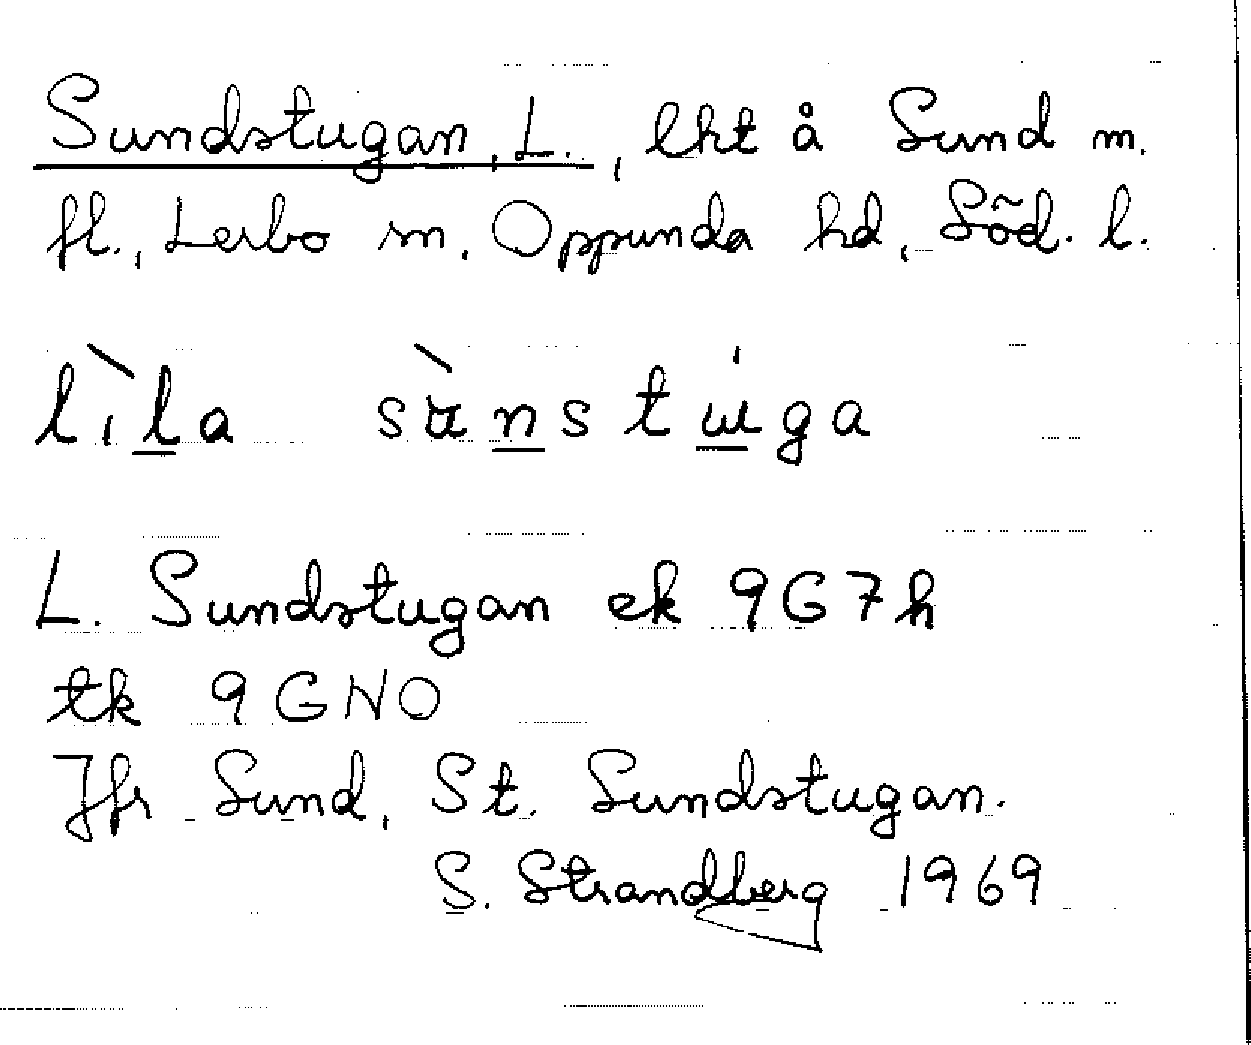 Sundstugan, L., lht å Sund m.
fl., Lerbo sn, Oppunda hd, Söd. l.
lìla sànstɯ́ga
L. Sundstugan ek 9G7h
tk 9GNO
Jfr Sund, St. Sundstugan.
S. Strandberg 1969